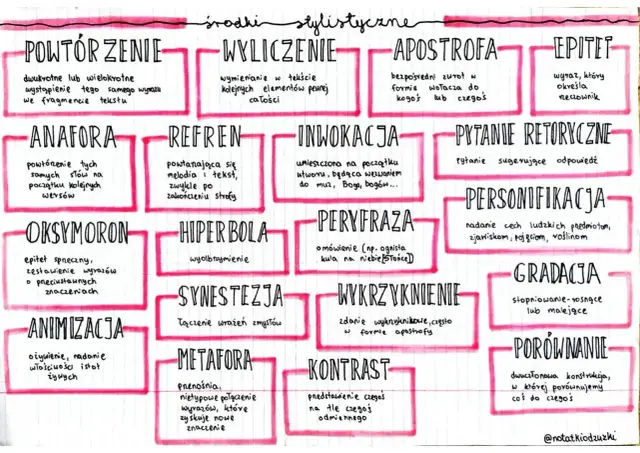 środki stylistyczne
POWTÓRZENIE
dwukrotne lub wielokrotne
wystąpienie tego samego wyrazu
we fragmencie tekstu
WYLICZENIE
wymienianie w tekście
kolejnych elementów pewnej
całości
APOSTROFA
bezpośredni zwrot w
formie wołacza do
kogoś lub czegoś
EPITET
wyraz, który
określa
rzeczownik
ANAFORA
powtórzenie tych
samych słów na
początku kolejnych
wersów
REFREN
powtarzająca się
melodia i tekst,
zwykle po
zakończeniu strofy
INWOKACJA
umieszczona na początku
utworu, będąca wezwaniem
do muz, Boga, bogów...
PYTANIE RETORYCZNE
pytanie sugerujące odpowiedź
PERSONIFIKACJA
nadanie cech ludzkich przedmiotom,
zjawiskom, pojęciom, roślinom
OKSYMORON
epitet sprzeczny,
zestawienie wyrazów
o przeciwstawnych
znaczeniach
HIPERBOLA
wyolbrzymienie
PERYFRAZA
omówienie (np. ognista
kula na niebie[Słońce])
GRADACJA
stopniowanie-rosnące
lub malejące
ANIMIZACJA
ożywienie, nadanie
właściwości istot
żywych
SYNESTEZJA
łączenie wrażeń zmysłów
WYKRZYKNIENIE
zdanie wykrzyknikowe, często
w formie apostrofy
METAFORA
przenośnia,
nietypowe połączenie
wyrazów, które
zyskuje nowe
znaczenie
KONTRAST
przedstawienie czegoś
na tle czegoś
odmiennego
PORÓWNANIE
dwuczłonowa konstrukcja,
w której porównujemy
coś do czegoś
@notatkiodzuzki